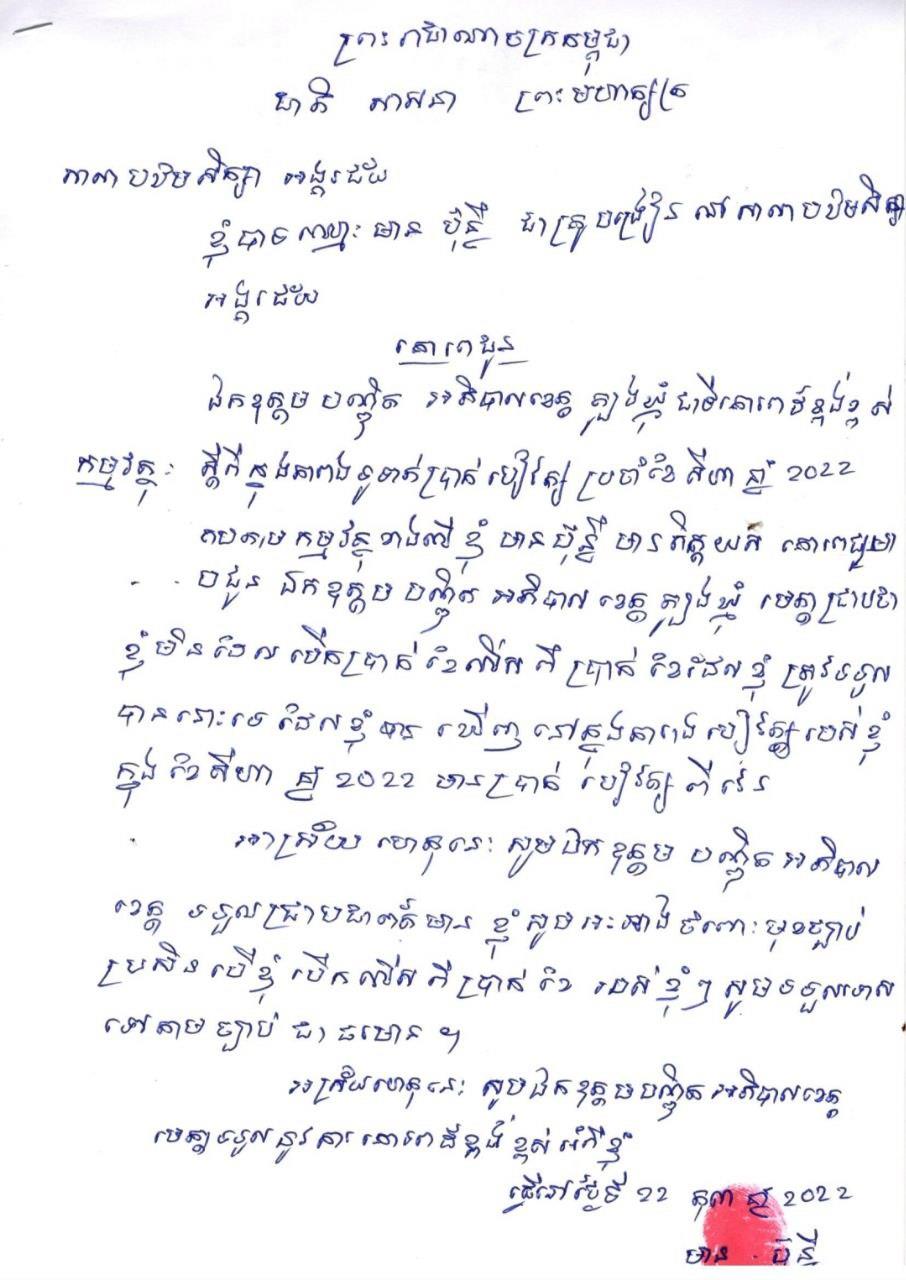 ព្រះរាជាណាចក្រកម្ពុជា
ជាតិ សាសនា ព្រះមហាក្សត្រ
សាលាបឋមសិក្សា អង្គរជ័យ
ខ្ញុំបាទ ឈ្មោះ មាន ប៊ុន្នី ជាគ្រូបង្រៀន នៅសាលាបឋមសិក្សា
អង្គរជ័យ
គោរពជូន
ឯកឧត្តម បណ្ឌិត អភិបាលខេត្ត ត្បូងឃ្មុំ ជាទីគោរពដ៏ខ្ពង់ខ្ពស់
កម្មវត្ថុ: ស្តីពី ក្នុងតារាង ទូទាត់ប្រាក់ បៀវត្ស ប្រចាំខែ សីហា ឆ្នាំ 2022
តបតាម កម្មវត្ថុ ខាងលើ ខ្ញុំ មាន ប៊ុន្នី មានកិត្តិយស គោរព
ជូន ឯកឧត្តម បណ្ឌិត អភិបាល ខេត្ត ត្បូងឃ្មុំ មេត្តាជ្រាបថា
ខ្ញុំ មិន ដែល បើកប្រាក់ ខែលើស ពី ប្រាក់ ខែដែល ខ្ញុំ ត្រូវទទួល
បាននោះទេ ដែលខ្ញុំ បាន ឃើញ នៅក្នុងតារាង បៀវត្ស របស់ ខ្ញុំ
ក្នុង ខែសីហា ឆ្នាំ 2022 មានប្រាក់ បៀវត្ស ពីរ
អាស្រ័យ ហេតុនេះ សូមឯកឧត្តម បណ្ឌិត អភិបាល
ខេត្ត ទទួលជ្រាបជាព័ត៌មាន ខ្ញុំ សូមអះអាង ចំពោះមុខច្បាប់
ប្រសិន បើខ្ញុំ បើក លើស ពី ប្រាក់ ខែ របស់ ខ្ញុំៗ សូមទទួលទោស
ទៅតាម ច្បាប់ ជាធរមាន ។
អាស្រ័យហេតុនេះ សូមឯកឧត្តមបណ្ឌិត អភិបាលខេត្ត
មេត្តាទទួលនូវការគោរពដ៏ខ្ពង់ ខ្ពស់ អំពីខ្ញុំ
ធ្វើនៅថ្ងៃទី 22 តុលា ឆ្នាំ 2022
មាន ប៊ុន្នី